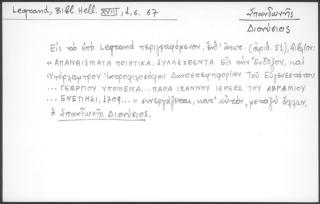 Legrand, Bibl. Hell. XVIII, 1, σ. 67
Σπανδωνῆς
Διονύσιος
Εἰς τὸ ὑπὸ Legrand περιγραφόμενον, (ἀριθ. 51), βιβλίον:
«ΑΠΑΝΘΙΣΜΑΤΑ ΠΟΙΗΤΙΚΑ, ΣΥΛΛΕΧΘΕΝΤΑ Εἰς τὴν Ἔνδοξον, καὶ
Ὑπέρλαμπρον Τοῦ Εὐγενεστάτου
... ΓΕΩΡΓΙΟΥ ΥΠΟΜΕΝΑ... ΠΑΡΑ ΙΩΑΝΝΟΥ ΙΕΡΕΩΣ ΤΟΥ ΑΒΡΑΜΙΟΥ
... ΕΝΕΤΙΗΣΙ, 1709...» συνεργάζεται, κατ' αὐτόν, μεταξὺ ἄλλων,
ὁ Σπανδωνῆς Διονύσιος.